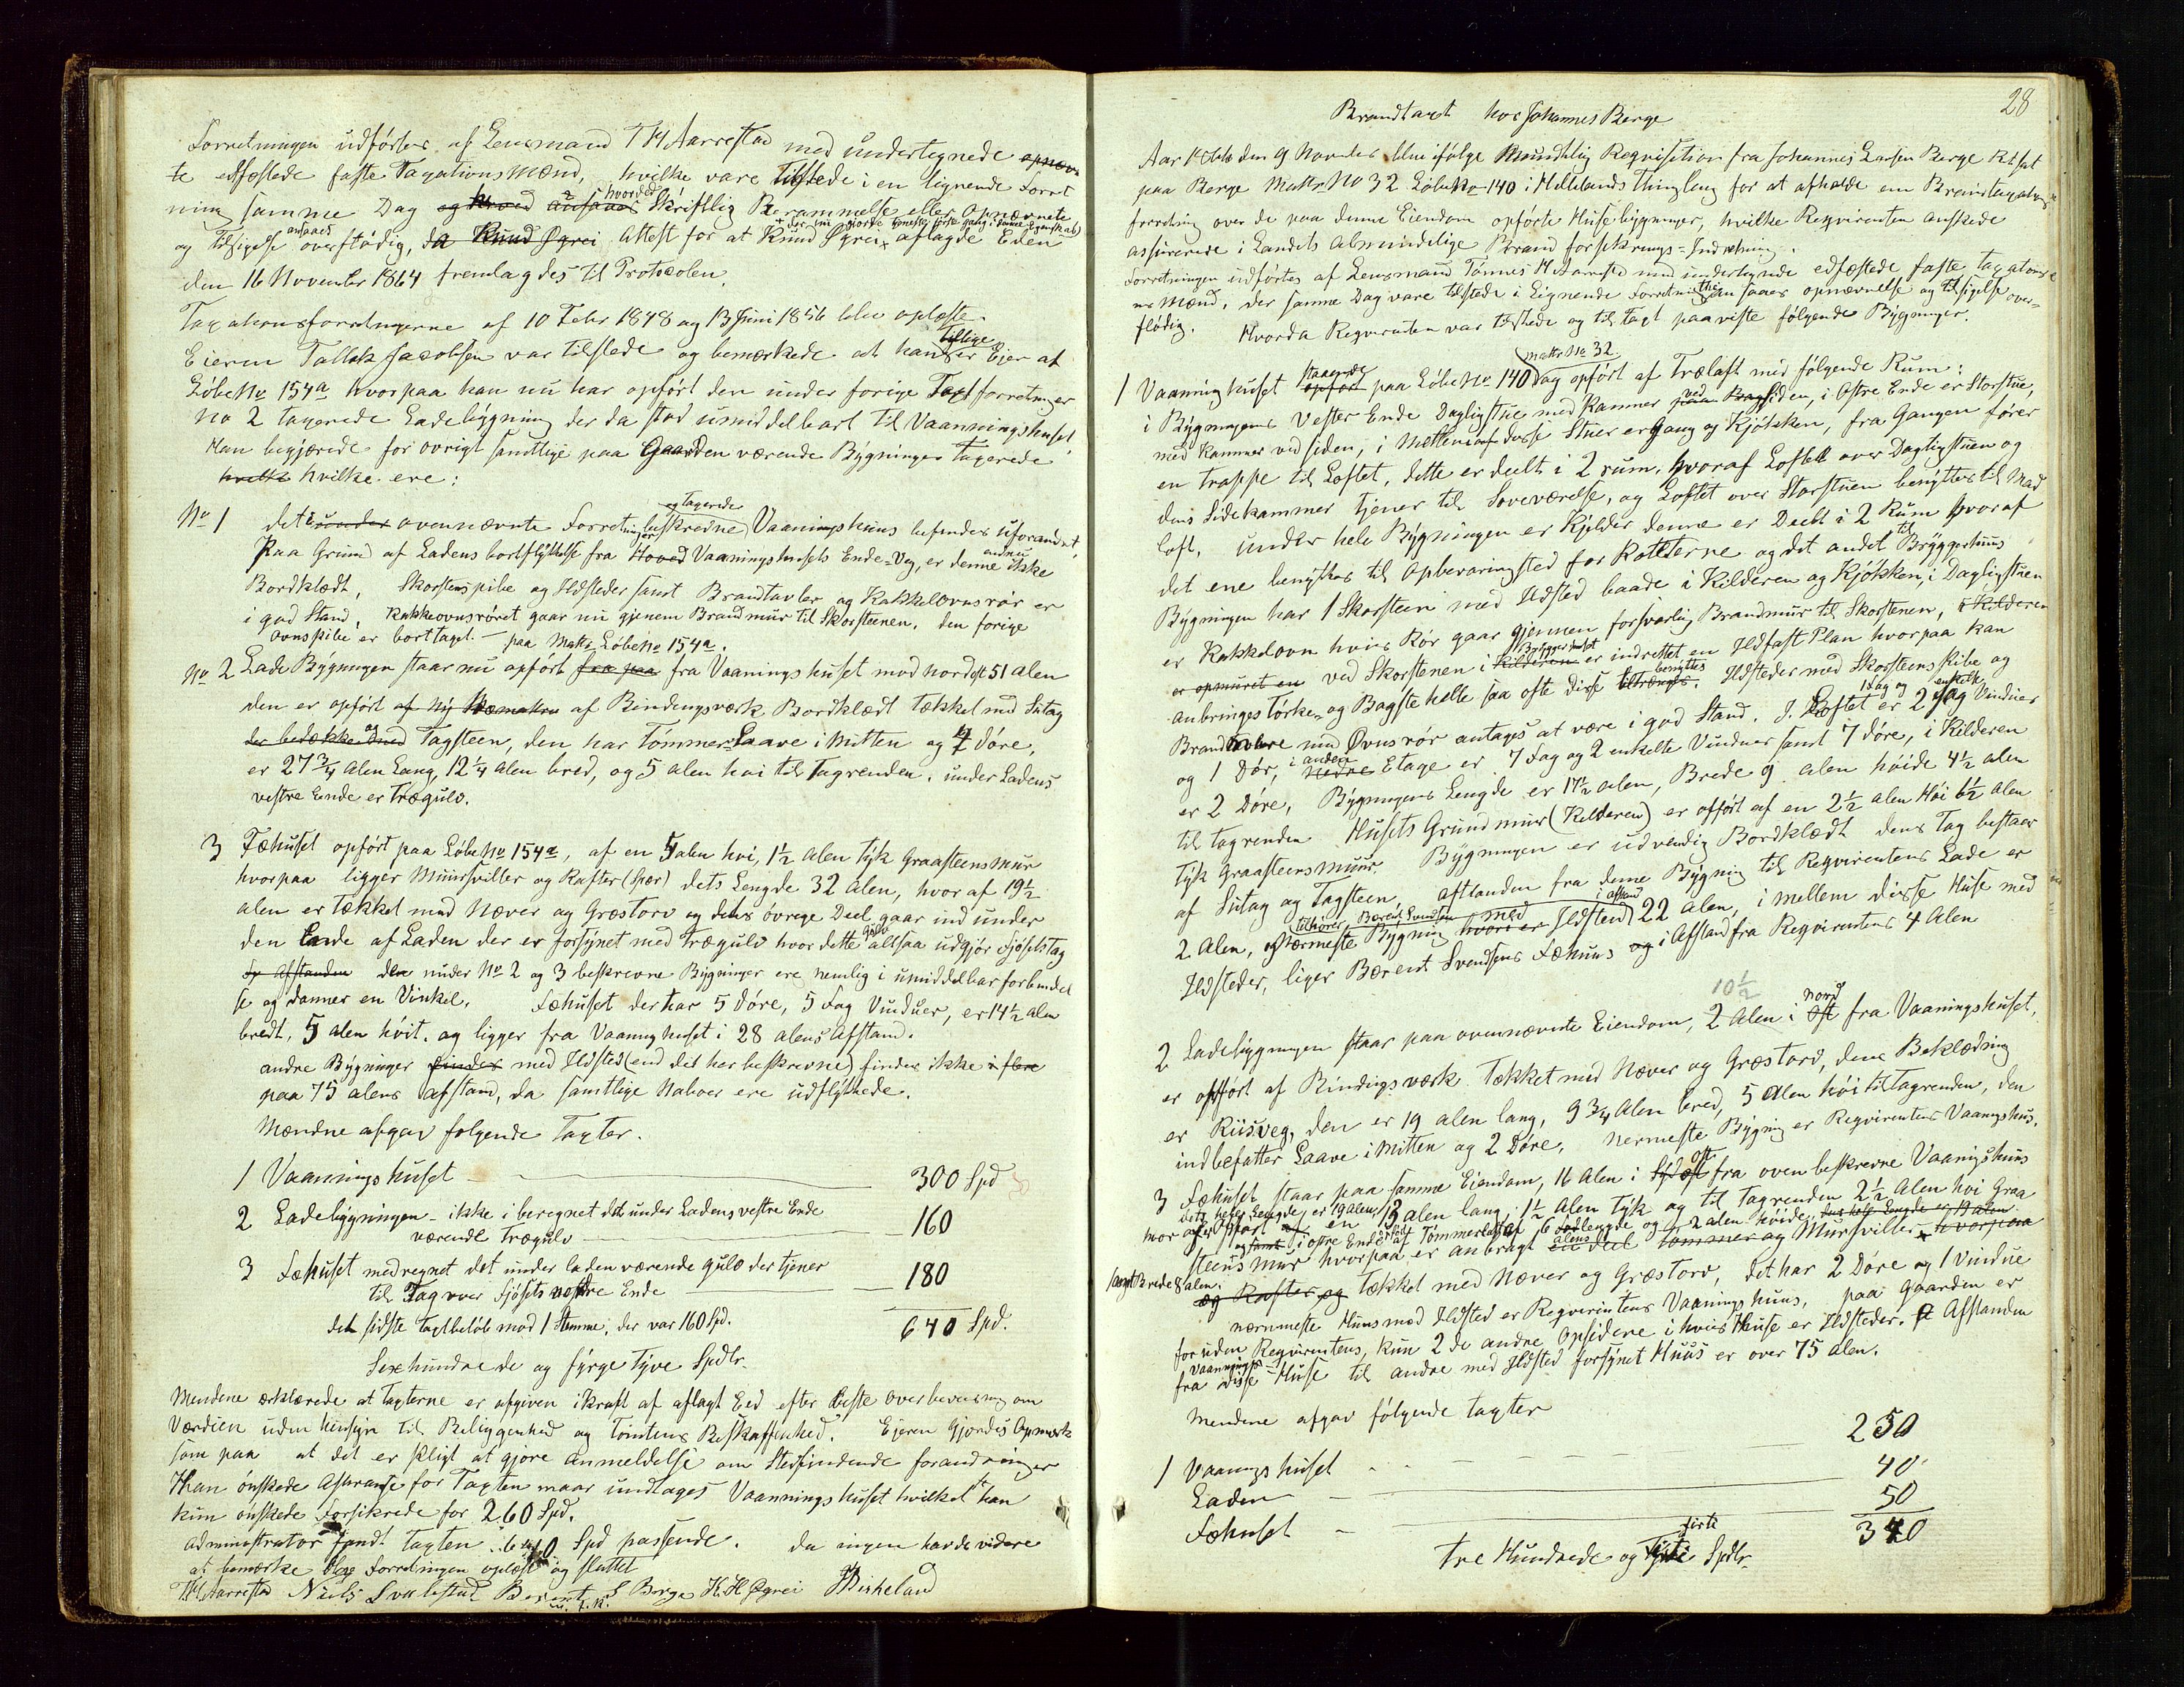 Forretningen udførtes af Lensmand T H Aarrestad med undertegnede opnævn
te edfæstede faste Taxationsmænd, hvilke vare tilstede i en lignende Forret
ning samme Dag og hvorved ansaaes Skriftlig Berammelse eller Opnævnete
og Tilsigelse ansaaes overflödig, da Knud Øgrei Attest for at Knud Øgrei aflagde Eden
den 16 November 1864 fremlagdes til Protocolen.
Taxationsforretningerne af 10 Febr 1848 og 13 Juni 1856 blev oplæste.
Eieren Tallak Jacobsen var tilstede og bemærkede at han tillige er Ejer af
Løbe No 154a hvorpaa han nu har opført den under forige Taxtforretninger
No 2 taxerede Ladebygning der da stod umiddelbart til Vaanningshuset,
Han begjærede for øvrigt samtlige paa Gaarden værende Bygninger taxerede
hvilke hvilke ere:
No 1 det i under ovennævnte Forretninger beskrevne og taxerede Vaaningshuus befindes uforandret,
Paa Grund af Ladens bortflyttelse fra Hoved Vaaningshusets Ende-Væg, er denne endnu ikke
Bordklædt, Skorstenspibe og Ildsteder samt Brandtavler og Kakkelovnsrør er
i god Stand, Kakkeovnsrøret gaar nu gjenem Brandmur til Skorsteenen. den forige
ovnspibe er borttaget. — paa Matr Løbe No 154a.
No 2 Lade Bygningen staar nu opført fra paa fra Vaaningshuset mod nordost 51 alen
den er opført af ny af Bindingsværk Bordklædt Tækket med Sutag
der bedækkes med og Tagsteen, den har Tömmer Laave i Mitten og 4 döre,
er 27 3/4 Alen Lang, 12 1/4 Alen bred, og 5 alen höi til Tagrenden. under Ladens
vestre Ende er Trægulv.
3 Fæhuset opført paa Løbe No 154a, af en 5 alen höi, 1 1/2 Alen tyk Graasteensmur
hvorpaa ligger Muursviller og Rafter (Spær) dets Lengde 32 Alen, hvor af 19 1/2
alen er Tækket med Næver og Græstorv og dets övrege Deel gaar ind under
den Ende af Laden der er forsynet med Trægulv hvor dette Gulv altsaa udgjör Fjösets Tag
Afstanden den under No 2 og 3 beskrevne Bygninger ere nemlig i umiddelbar forbindel
se og danner en Vinkel. Fæhuset der har 5 döre, 5 Fag Vinduer, er 14 1/2 Alen
bredt, 5 alen höit. og ligger fra Vaaninghuset i 28 alens Afstand.
andre Bygninger findes med Ildsted (end det her beskrevne) findes ikke i flere
paa 75 alens afstand, da samtlige Naboer ere udflyttede.
Mændne afgav folgende Taxter.
1 Vaanningshuset — 300 Spd
2 Ladebygningen — ikke i beregnet det under Ladens vestre Ende
værende Trægulv — 160
3 Fæhuset medregnet det under laden værende gulv der tjener
til Tag over Fjösets vestre Ende — 180
det sidste taxtbeløb mod 1 Stemme, der var 160 Spd. 640 Spd.
Sexhundrede og fyrge Tyve Spdlr.
Mendene erklærede at taxterne er afgiven ikraft af aflagt Eed efter beste overbevising om
Værdien uden hensyn til Beliggenhed og Tomtens Beskaffenhed. Ejeren gjordes Opmærk
som paa at det er Pligt at gjöre anmeldelse om Stedfindende forandringer
Han önskede Assurance for Taxten maar undtages Vaanningshuset hvilket han
kun önskede Forsikrede for 260 Spd.
Administrator fandt Taxten 640 Spd passende. da ingen havde videre
at bemærke blev Forretningen oplæst og sluttet
TH Aarrestad Niels Svalestad Berent S Berge K. H Øgrei Birkeland
m. f. P.
28
Brandtaxt hos Johannes Berge
Aar 1866 den 9 November blev ifølge Mundtlig Reqvisition fra Johannes Larsen Berge Ret sat
paa Berge Matr No 32 Løbe No 140 i Hellelands Thinglaug for at afholde en Brandtaxations
forretning over de paa denne Eiendom opførte Huse bygninger, hvilke Reqvirenten önskede
assurerede i Landets Almindelige Brand forsikrings-Indretning.
Forretningen udførtes af Lensmand Tönnes H Aarrestad med undertegnede edfæstede faste taxations
mænd, der samme Dag vare tilstede i Lignende Forretning thi ansaaes opnævnelse og tilsigelse over-
flödig. Hvorda Reqvirenten var tilstede og til taxt paaviste følgende Bygninger.
1 Vaaninghuset opført staaende paa Løbe No 140 Matr No 32 og opført af Trælast med følgende Rum:
i Bygningens Vester Ende Dagligstue med Kammer paa ved Siden, i Østre Ende er Storstue,
med Kammer ved siden, i Mitten af disse Stuer er Gang og Kjökken, fra Gangen fører
en trappe til Loftet, dette er deelt i 2 rum, hvoraf Loftet over Dagligstuen og
dens Sidekammer tjener til Soveværelse, og Loftet over Storstuen benyttes til Mad
loft, under hele Bygningen er Kjelder denne er Deelt i 2 Rum hvoraf
det ene benyttes til opbevaringsted for Potteterne og det andet til Bryggerhuus
Bygningen har 1 Skorsteen med Ildsted baade i Kilderen og Kjökken, i Dagligstuen
er Kakkelovn hvis Rör gaar gjennem forsvarlig Brandmur til Skorstenen, i Kilderen
er opmuret en ved Skorstenen i Kilderen Bryggerhuset er indrettet en Ildfast Plan hvorpaa kan
anbringes Törke- og Bagste helle saa ofte disse tiltrænges benyttes. Ildsteder med Skorsteens Pibe og
Brandmure med Ovnsrör antages at være i god Stand. I Loftet er 1 Fag og 2 enkelte Fag Vinduer
og 1 Dör, i nedre anden Etage er 7 Fag og 2 enkelte Vinduer samt 7 döre, i Kilderen
er 2 Döre, Bygningens Lengde er 17 1/2 alen, Brede 9 alen höide 4 1/2 alen
til tagrenden Husets Grundmur (Kilderen) er opført af en 2 1/2 alen Höi 1 1/2 Alen
tyk Graasteensmuur. Bygningen er udvendig Bordklædt dens Tag bestaar
af Sutag og Tagsteen, afstanden fra denne Bygning til Reqvirentens Lade er
2 Alen, og Nærmeste Bygning hvori er med Ildsted tilhører Berent Svendsen i afstand 22 Alen, i mellem disse Huse med
Ildsteder, liger Bærent Svendsens Fæhuus og i Afstand fra Reqvirentens 4 Alen
10 1/2
2 Ladebygningen staar paa ovennævnte Eiendom, 2 Alen i Øst nord fra Vaaningshuset,
er opført af Bindingsværk. Tækket med Næver og Græstorv, dens Beklædning
er Riisveg, den er 19 alen lang, 9 3/4 Alen bred, 5 Alen höi til Tagrenden, den
indbefatter Laave i Mitten og 2 Döre, nermeste Bygnig er Reqvirentens Vaaningshus.
3 Fæhuset staar paa samme Eiendom, 16 Alen i Sydost øst fra oven beskrevne Vaanigshuus
dets hele Lengde er 19 alen,
mor af opført af en 13 alen lang, 1 1/2 Alen Tyk og til Tagrenden 2 1/2 Alen höi Graa
og samt i østre Ende af Tömmerlast af 6 alens lengde og 2 alen höide, dens hele Lengde er 19 alen
steens mur hvorpaa er anbragt en deel tömmer og Mursviller hvorpaa
samt Brede 8 alen.
og Rafter og tækket med Næver og Græstorv, det har 2 Döre og 1 Vindue
nærmeste Huus med Ildsted er Reqvirentens Vaaningshuus, paa Gaarden er
for uden Reqvirentens, kun 2 de andre Opsidere i hvis Huse er Ildsteder. Afstanden
fra disse Vaannings Huse til andre med Ildsted forsynet Huus er over 75 alen.
Mendene afgav følgende taxter
1 Vaanigshuset — 250
Laden — 40
Fæhuset — 50
340
tre Hundrede og Firti Spdlr.